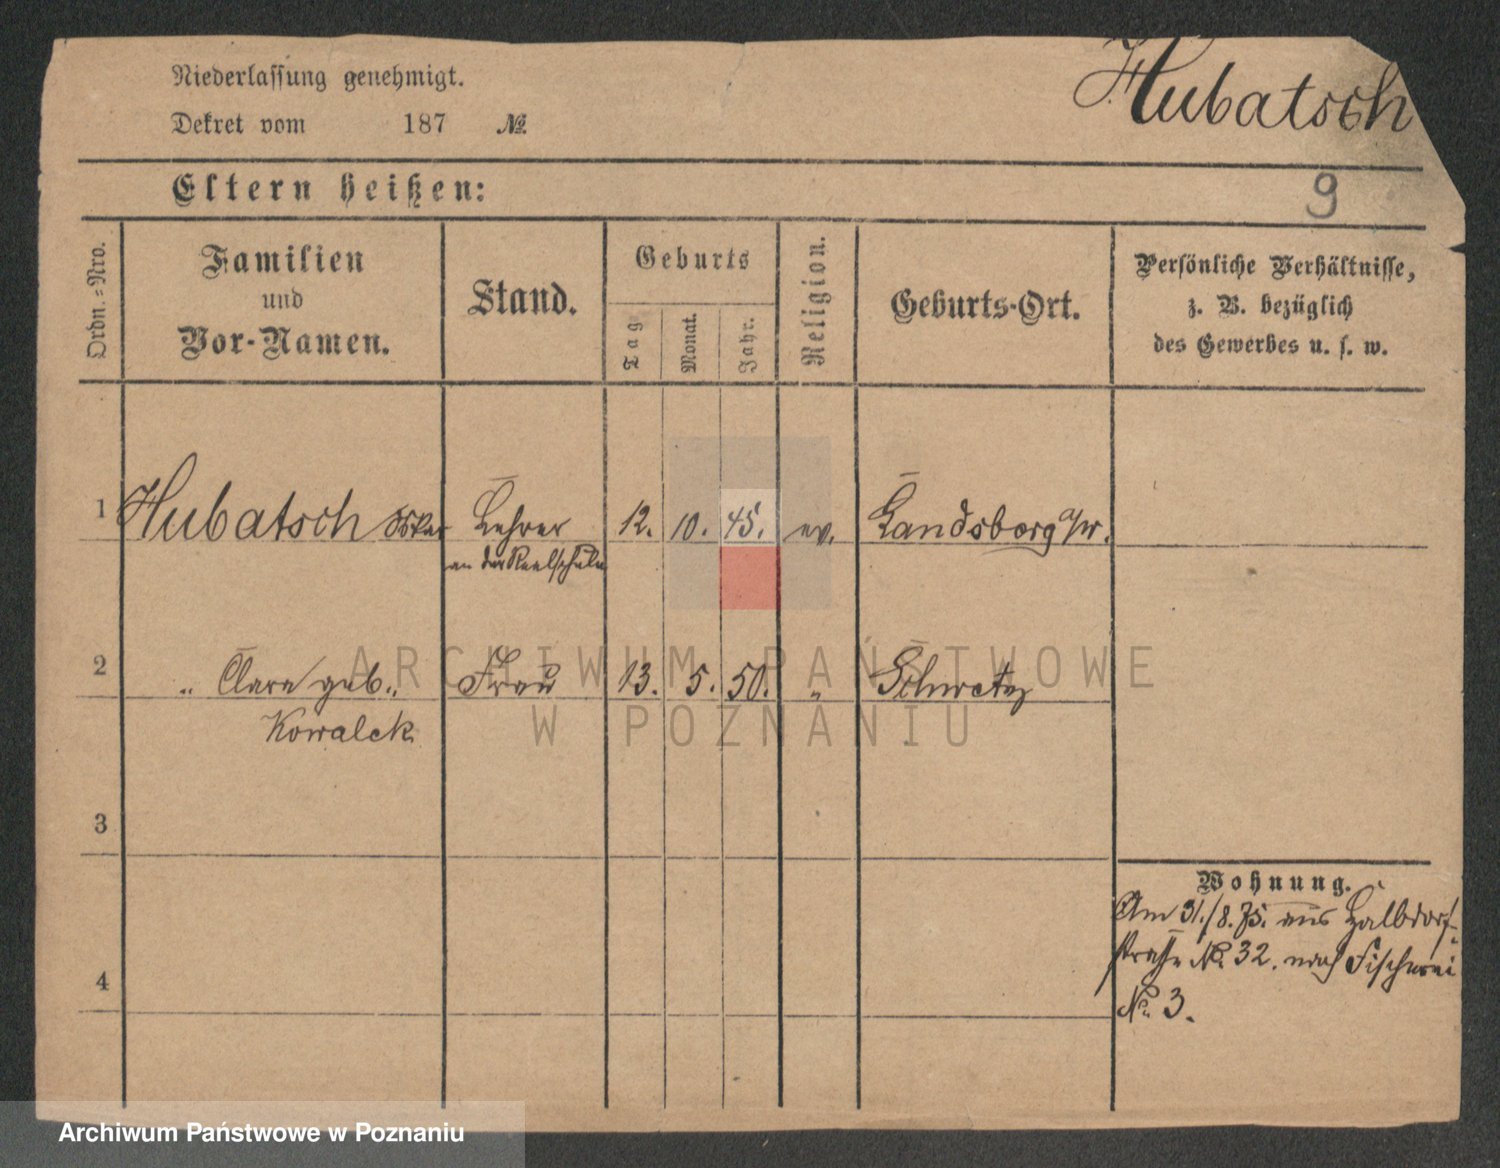 Niederlassung genehmigt.
Dekret vom 187 №
Hubatsch
Eltern heißen:
9
Ordn.=Nro.
Familien
und
Vor-Namen.
Stand.
Geburts
Tag
Monat.
Jahr.
Religion.
Geburts-Ort.
Persönliche Verhältnisse,
z. B. bezüglich
des Gewerbes u. s. w.
1 Hubatsch Oskar Lehrer 12. 10. 45. ev. Landsberg a/w.
an der Realschule
2 " Clara geb. Frau 13. 5. 50. " Schwetz
Kowalek
3
4
Wohnung.
Am 31./8.75. aus Halbdorf-
straße No. 32. nach Fischerei
No. 3.
ARCHIWUM PAŃSTWOWE
W POZNANIU
Archiwum Państwowe w Poznaniu